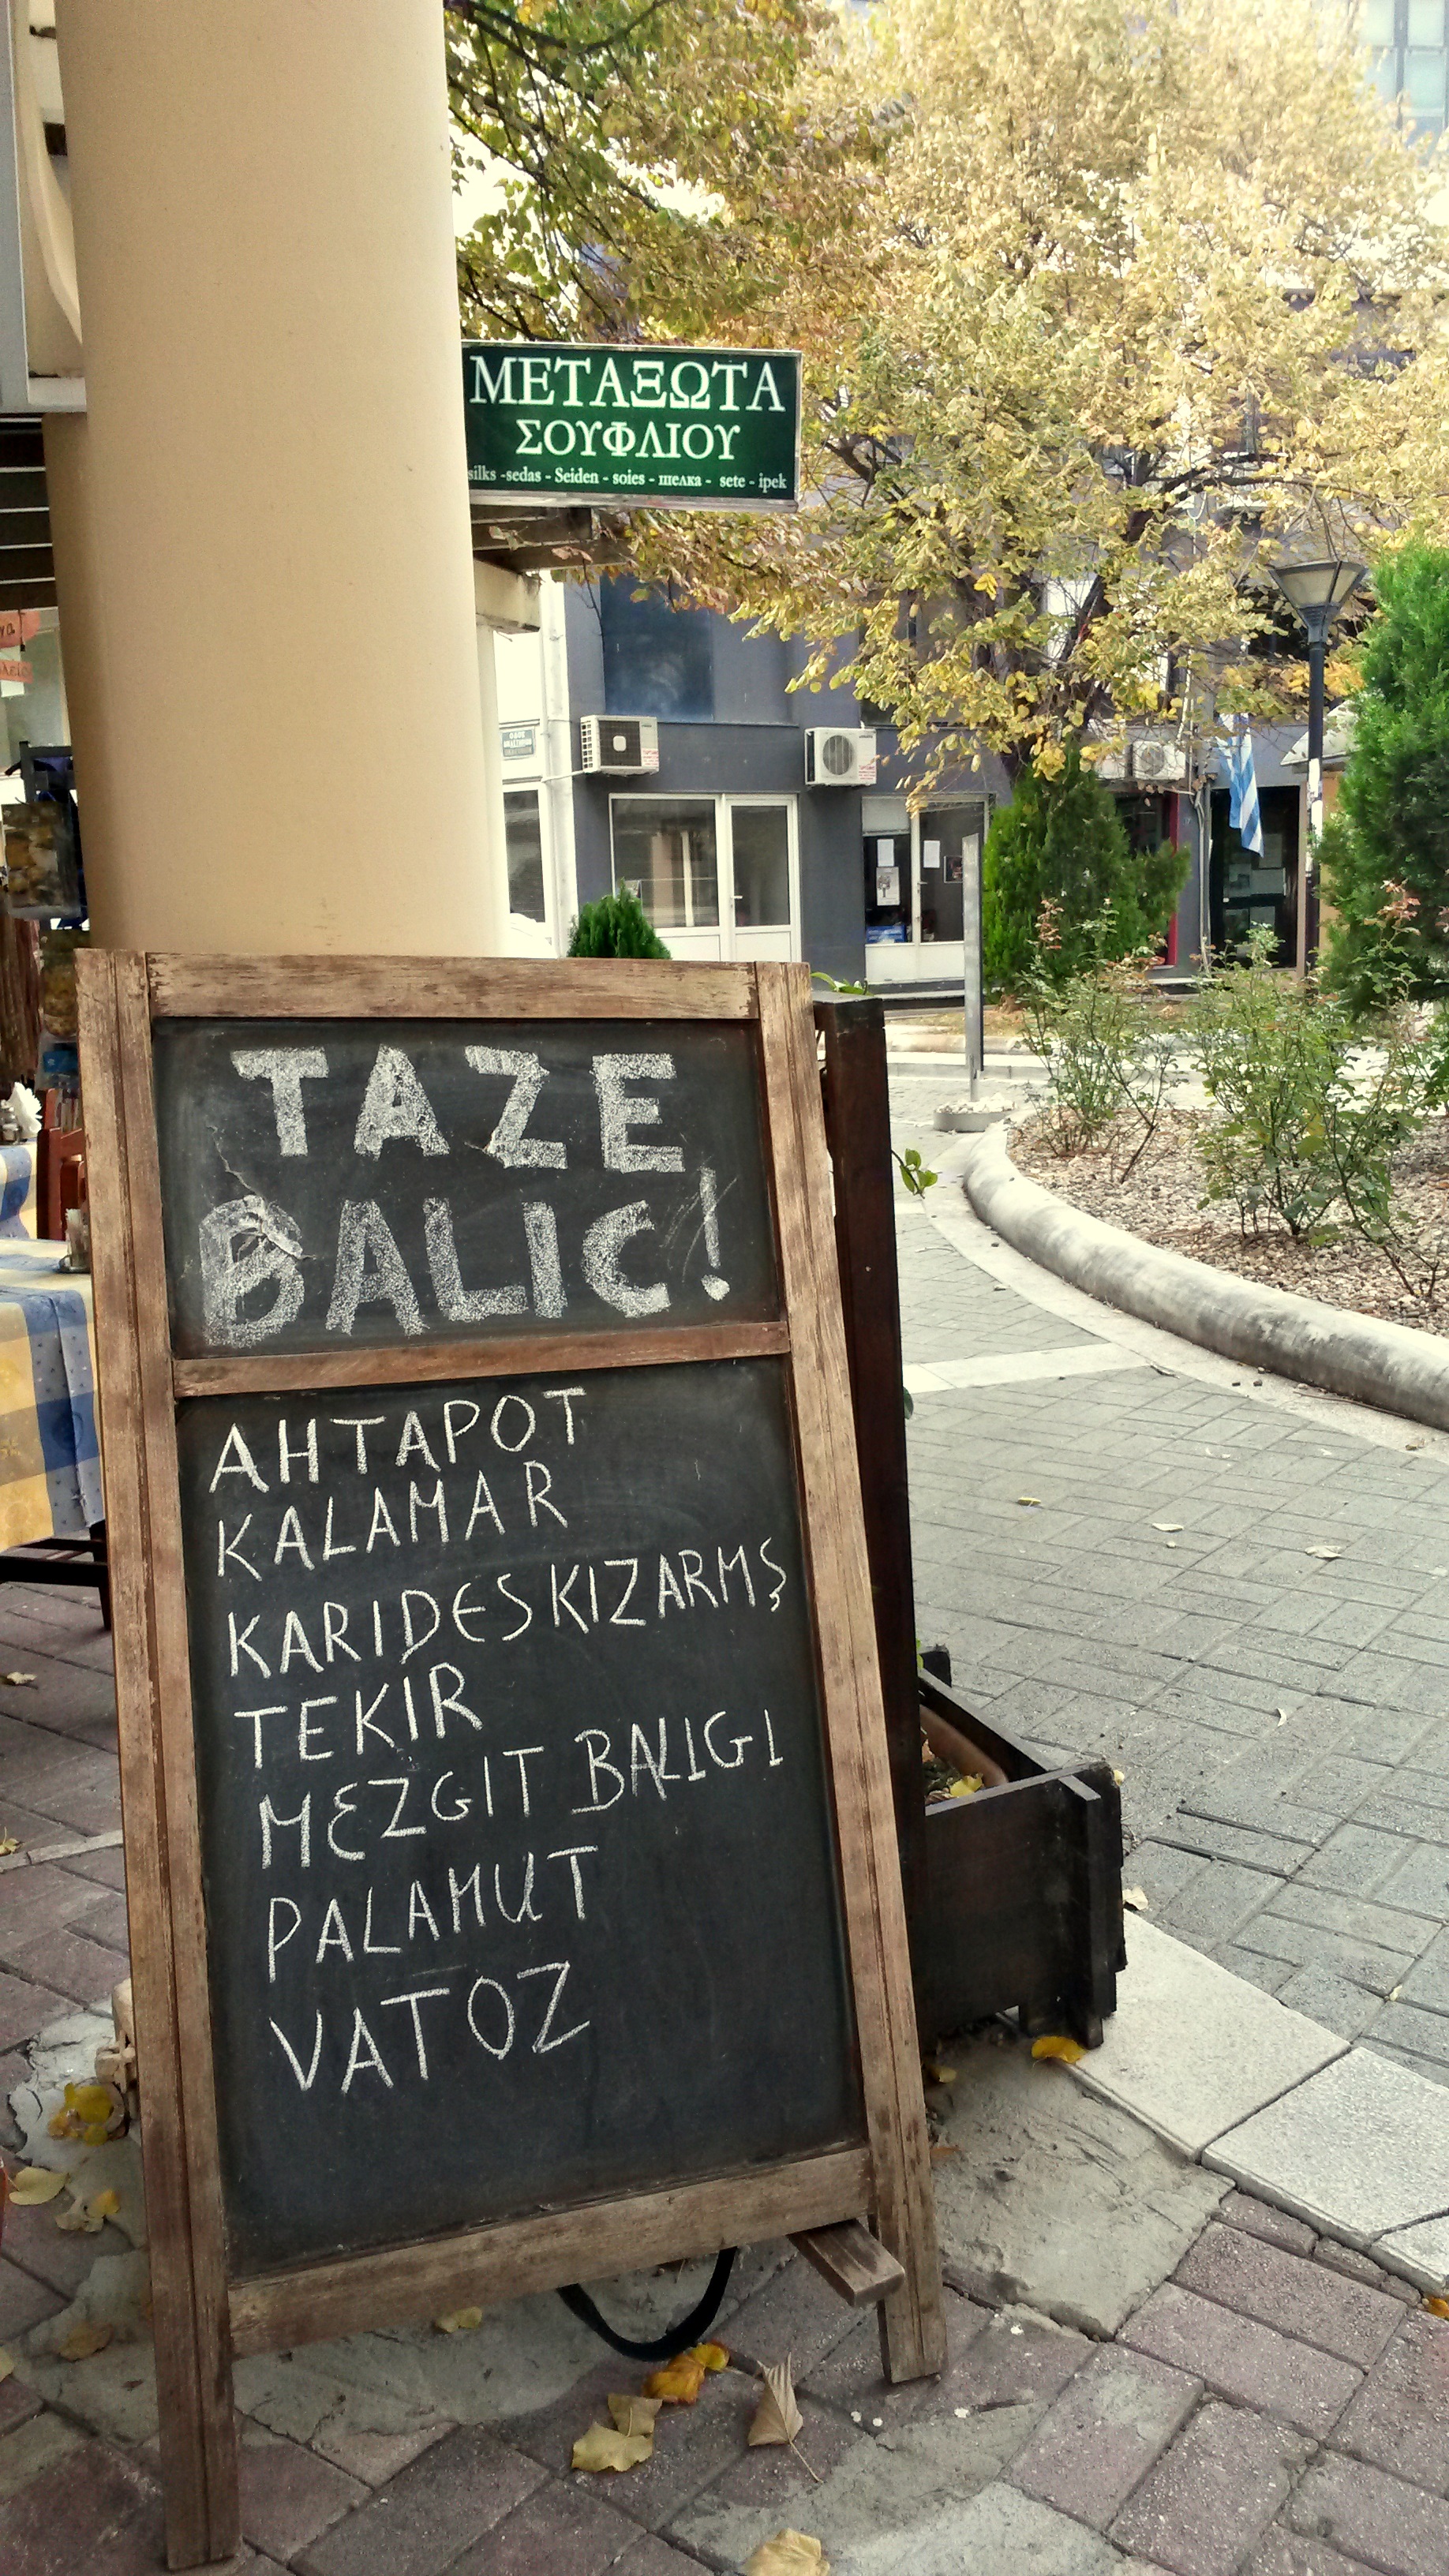 ΜΕΤΑΞΩΤΑ
ΣΟΥΦΛΙΟΥ
silks - sedas - Seiden - soies - шелка - sete - ipek
ΟΔΟΣ
TAZE
BALIC!
AHTAPOT
KALAMAR
KARIDES KIZARMŞ
TEKIR
MEZGIT BALIGI
PALAMUT
VATOZ